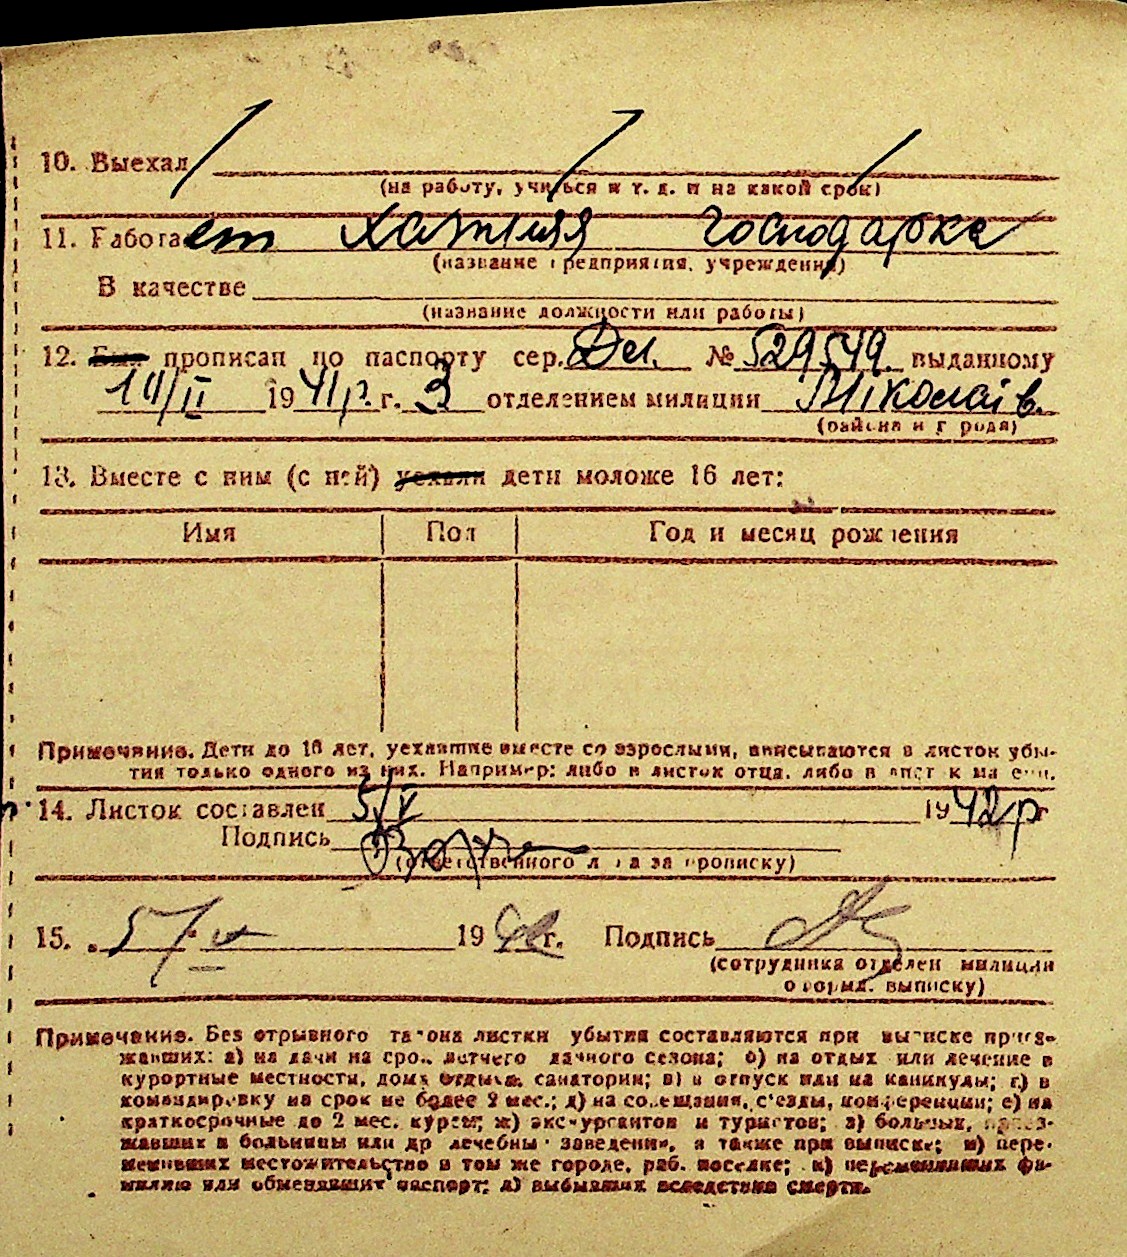 10. Выехал
(на работу, учиться и т. д. и на какой срок)
11. Работает хатняя господарка
(название предприятия, учреждения)
В качестве
(название должности или работы)
12. Был прописан по паспорту сер. № 529549. выданному
14/II 1941р. г. 3 отделением милиции Мiколаiв.
(района и города)
13. Вместе с ним (с ней) уехали дети моложе 16 лет:
Имя Пол Год и месяц рождения
Примечание. Дети до 16 лет, уехавшие вместе со взрослыми, вписываются в листок убы-
тия только одного из них. Например: либо в листок отца, либо в листок матери.
14. Листок составлен 5/V 1942р г
Подпись
(ответственного лица за прописку)
15. 5/V 1942 г. Подпись
(сотрудника отделен милиции
оформл. выписку)
Примечание. Без отрывного талона листки убытия составляются при выписке приез-
жавших: а) на дачи на срок летнего дачного сезона; б) на отдых или лечение в
курортные местности, дома отдыха, санатории; в) в отпуск или на каникулы; г) в
командировку на срок не более 2 мес.; д) на совещания, съезды, конференции; е) на
краткосрочные до 2 мес. курсы; ж) экскурсантов и туристов; з) больных, приез-
жавших в больницы или др лечебны заведения, а также при выписке; и) пере-
менивших местожительство в том же городе, раб. поселке; к) переменивших фа-
милию или обменявших паспорт; л) выбывших вследствие смерти.